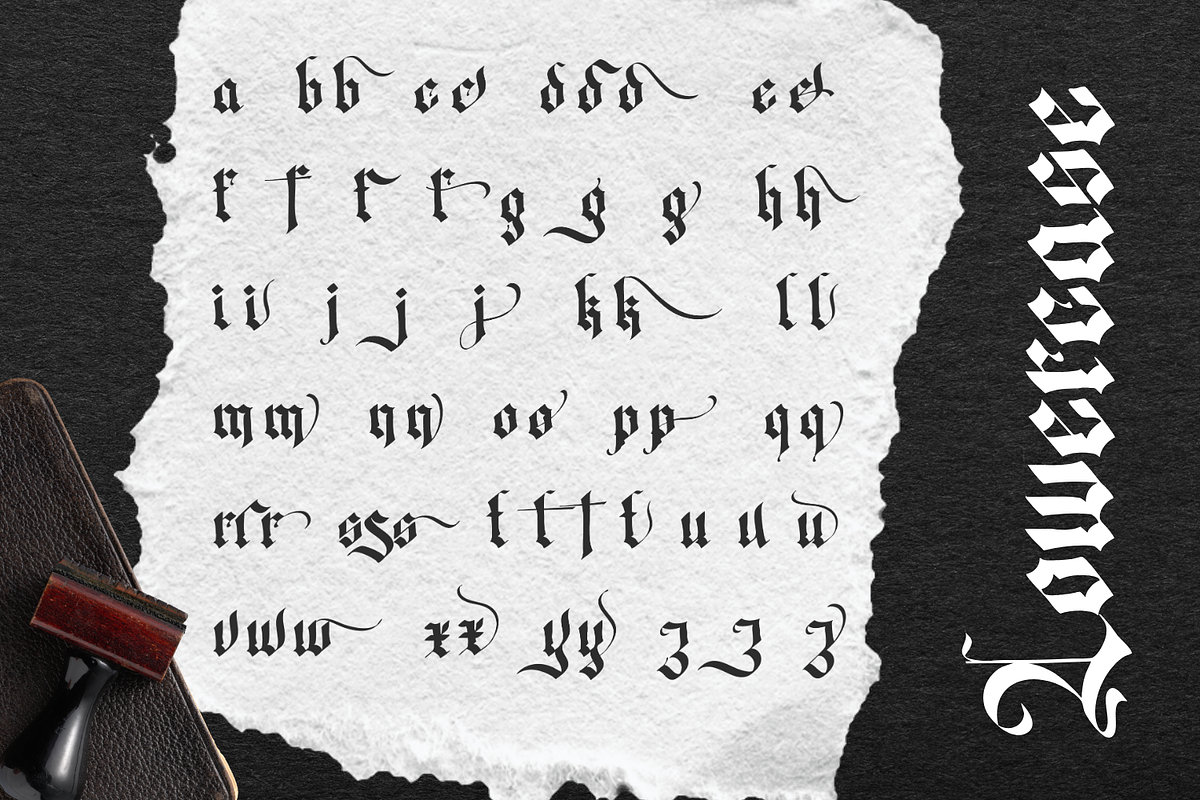 a b b c c d d d e e
f f f f g g g h h
i i j j j k k l l
m m n n o o p p q q
r r r s s s t t t t u u u
v w w x x y y z z z
Lowercase